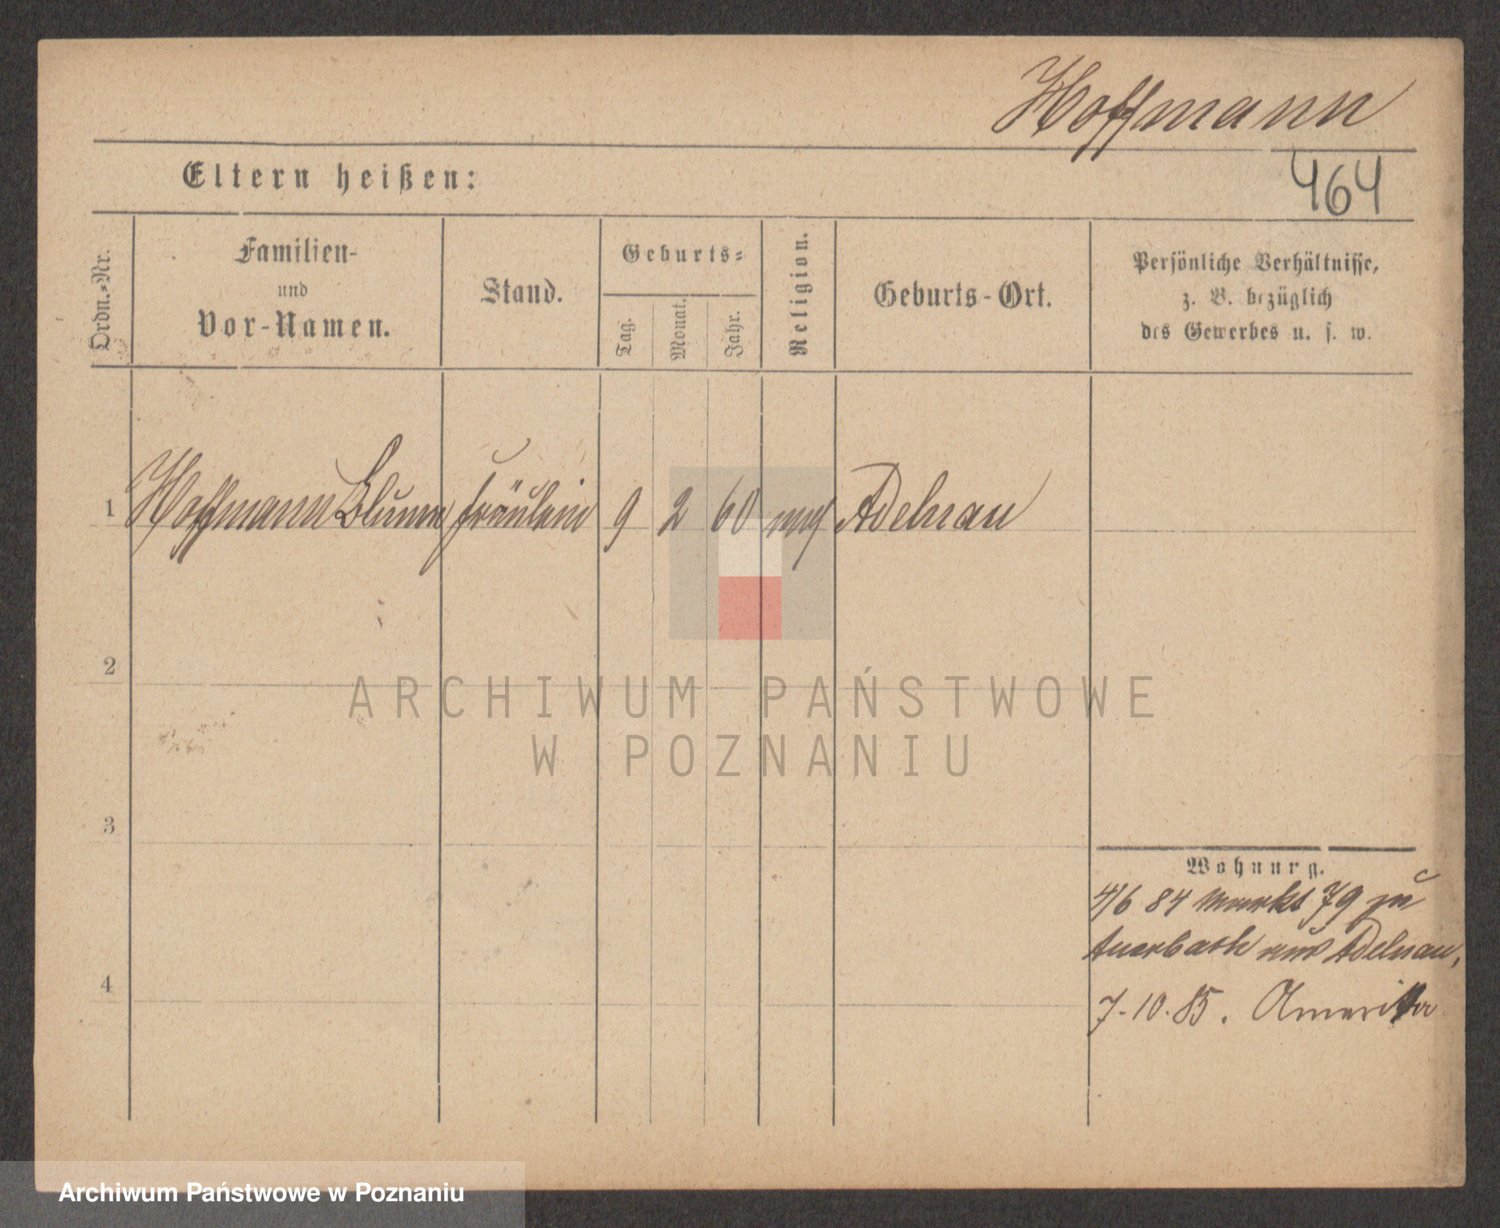 Hoffmann
464
Eltern heißen:
Ordn.-Nr.
Familien-
und
Vor-Namen.
Stand.
Geburts-
Tag.
Monat.
Jahr.
Religion.
Geburts-Ort.
Persönliche Verhältnisse,
z. B. bezüglich
des Gewerbes u. s. w.
1 Hoffmann Blume Fräulein 9 2 60 Adelnau
2
ARCHIWUM PAŃSTWOWE
W POZNANIU
3
Wohnung.
4/6 84 Markt 79 zu
Auerbach aus Adelnau,
4
7.10.85. Amerika
Archiwum Państwowe w Poznaniu